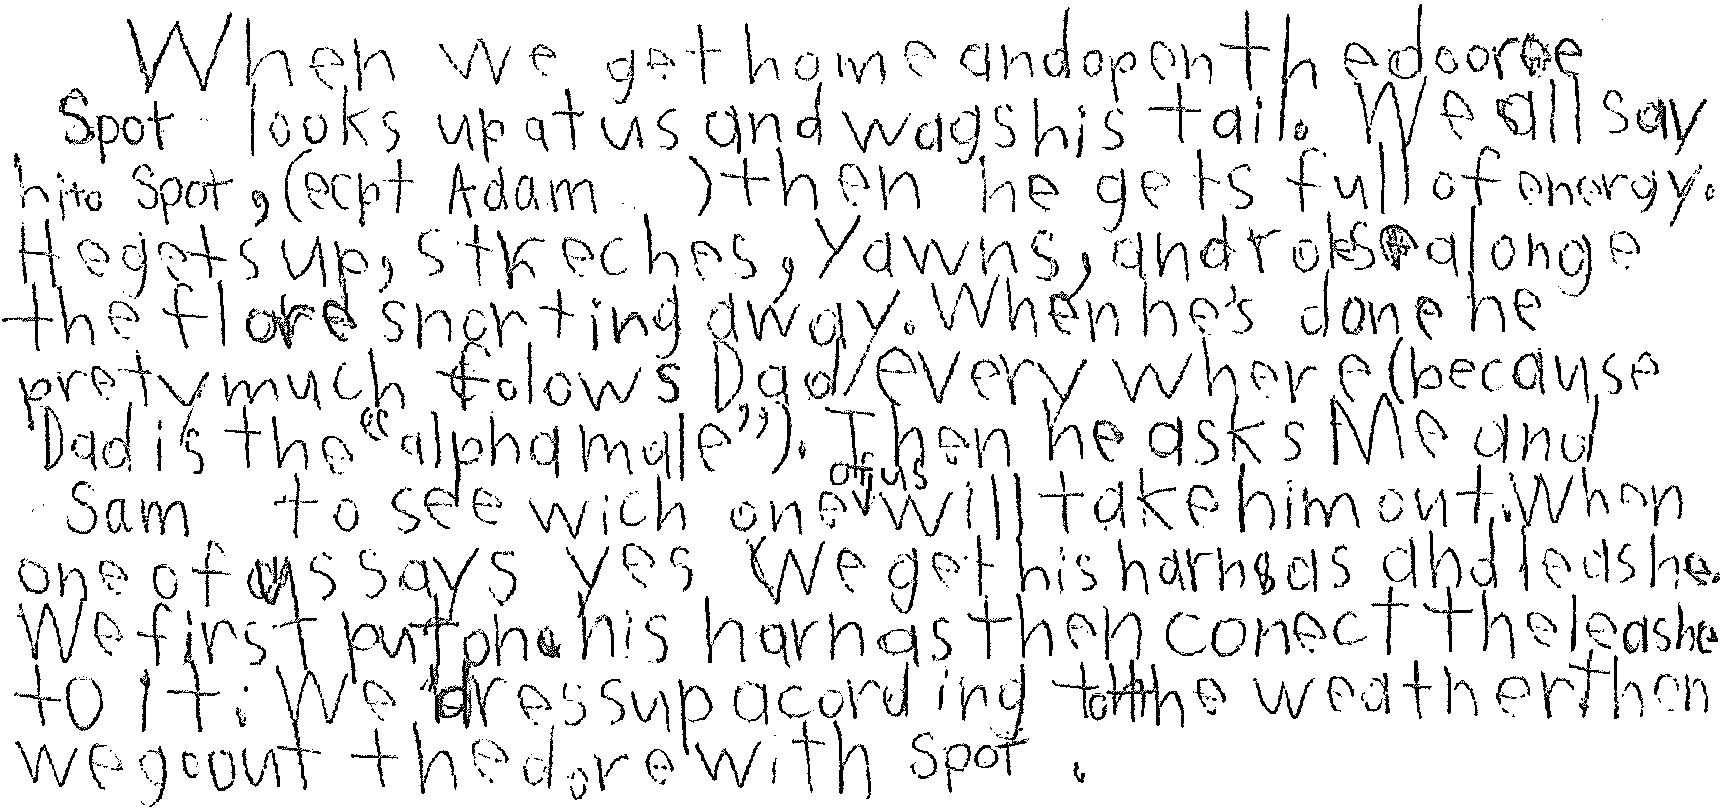 When we get home and open the doore
Spot looks up at us and wags his tail. We all say
hi to Spot, (ecpt Adam ) then he gets full of energy.
He gets up, streches, yawns, and rolse alonge
the flore snorting away. When he's done he
prety much folows Dad every where (because
Dad is the "alpha male"). Then he asks Me and
Sam to see wich one of us will take him out. When
one of us says yes We get his harnas and leashe.
We first put on his harnas then conect the leashe
to it. We dress up acording to the weather then
we go out the dore with Spot .